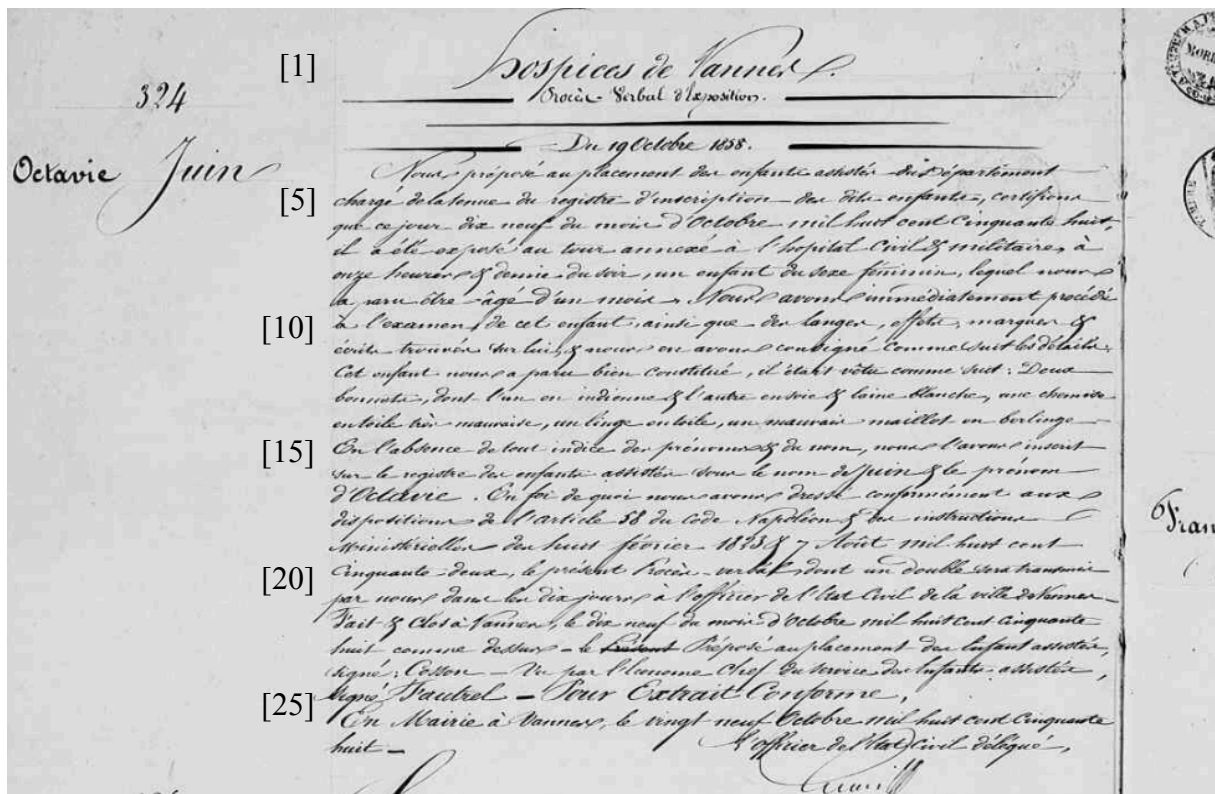 [1] Hospices de Vannes.
324
Procès-Verbal d'Exposition.
Du 19 Octobre 1858.
Octavie Juin
Nous, préposé au placement des enfants assistés du Département
[5] chargé de la tenue du registre d'inscription des dits enfants, certifions
que ce jour dix neuf du mois d'Octobre mil huit cent Cinquante huit,
il a été exposé au tour annexé à l'hopital Civil & militaire, à
onze heures & demie du soir, un enfant du sexe féminin, lequel nous
a paru être âgé d'un mois. Nous avons immédiatement procédé
[10] à l'examen de cet enfant, ainsi que des langes, effets, marques &
écrits trouvés sur lui, & nous en avons consigné comme suit les détails.
Cet enfant nous a paru bien constitué, il était vêtu comme suit: Deux
bonnets, dont l'un en indienne & l'autre en soie & laine blanche, une chemise
en toile très mauvaise, un linge en toile, un mauvais maillot en berlinge
[15] En l'absence de tout indice des prénoms & du nom, nous l'avons inscrit
sur le registre des enfants assistés sous le nom de Juin & le prénom
d'Octavie. En foi de quoi nous avons dressé conformément aux
dispositions de l'article 58 du Code Napoléon & des instructions
Ministérielles des huit février 1823 & 7 Août mil huit cent
[20] Cinquante deux, le présent Procès-verbal, dont un double sera transmis
par nous dans les dix jours à l'officier de l'Etat Civil de la ville de Vannes.
Fait & Clos à Vannes, le dix neuf du mois d'Octobre mil huit cent cinquante
huit comme dessus - le Présent Préposé au placement des Enfants assistés,
signé: Cosson - Vu par l'économe Chef du service des Enfants assistés,
[25] Signé, Fautrel - Pour Extrait Conforme,
En Mairie à Vannes, le vingt neuf Octobre mil huit cent Cinquante
huit - L'officier de l'Etat Civil délégué,
Fran